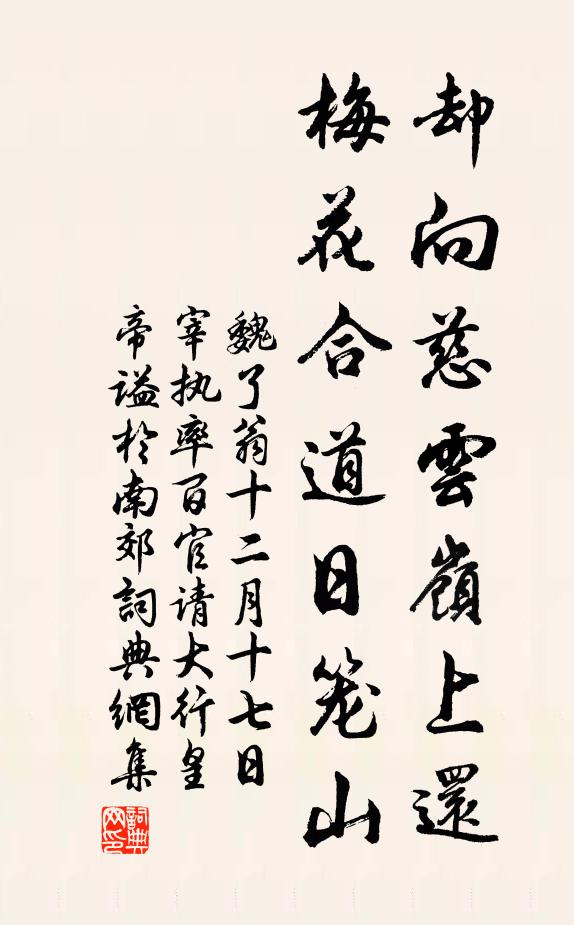 却向慈雲嶺上還
梅花合道日笼山
魏了翁十二月十七日
宰执率百官请大行皇
帝谥於南郊詞典網集
詞典網印